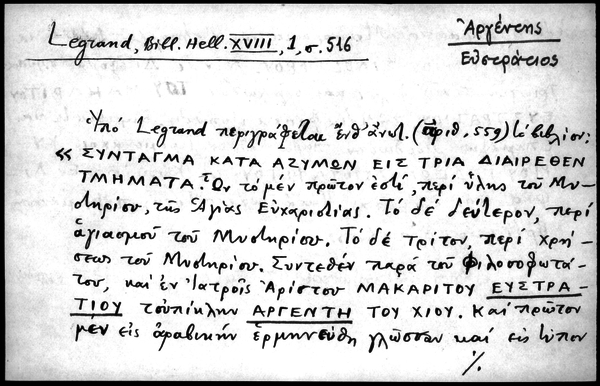 Legrand, Bill. Hell. XVIII, 1, σ. 516
Ἀργέντης
Εὐστράτιος
Ὑπό Legrand περιγράφεται ἔνθ' ἀνωτ. (ἀριθ. 559) τό βιβλίον:
« ΣΥΝΤΑΓΜΑ ΚΑΤΑ ΑΖΥΜΩΝ ΕΙΣ ΤΡΙΑ ΔΙΑΙΡΕΘΕΝ
ΤΜΗΜΑΤΑ. Ὧν τό μέν πρῶτον ἐστί, περί ὕλης τοῦ Μυ-
στηρίου, τῆς Ἁγίας Εὐχαριστίας. Τό δέ δεύτερον, περί
ἁγιασμοῦ τοῦ Μυστηρίου. Τό δέ τρίτον, περί χρή-
σεως τοῦ Μυστηρίου. Συντεθέν παρά τοῦ Φιλοσοφωτά-
του, καί ἐν Ἰατροῖς Ἀρίστου ΜΑΚΑΡΙΤΟΥ ΕΥΣΤΡΑ-
ΤΙΟΥ τοὐπίκλην ΑΡΓΕΝΤΗ ΤΟΥ ΧΙΟΥ. Καί πρῶτον
μέν εἰς ἀραβικήν ἑρμηνεύθη γλῶσσαν καί εἰς τύπον
./.